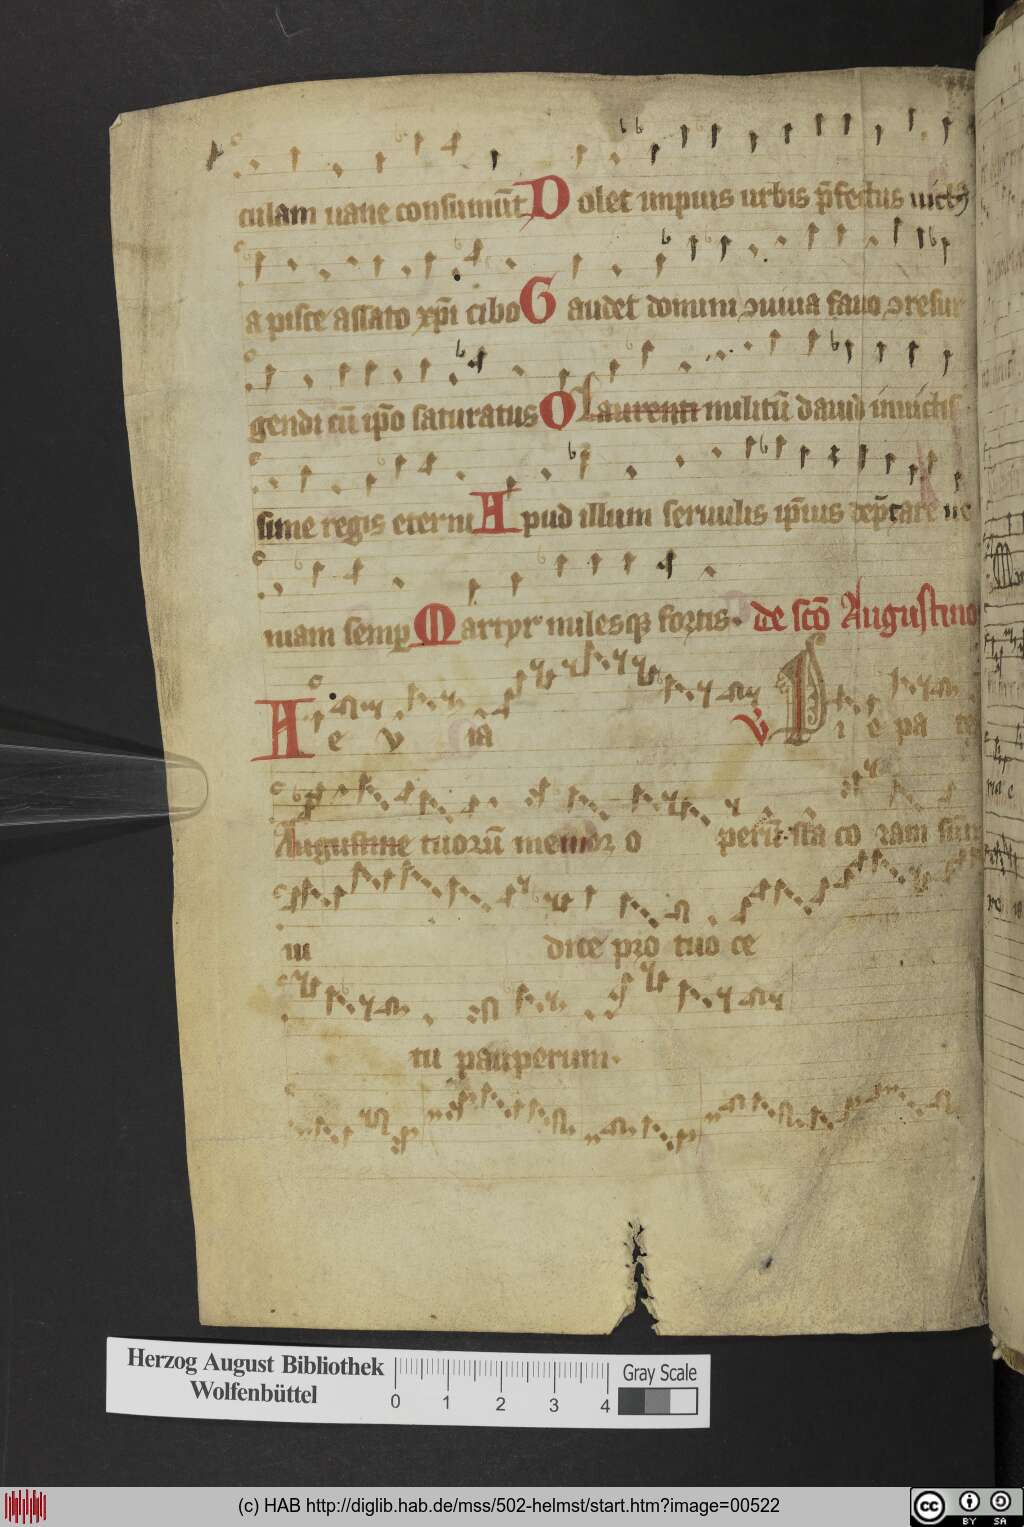 culam uane consumūt Dolet impius urbis p̄fectus uict9
a pisce assato xp̄i cibo Gaudet domini ɔuiua fauo ɔresur
gendi cū ip̄o saturatus O Laurenti militū dauid inuictis
sime regis eterni Apud illum seruulis ip̄ius dep̄care ue
niam semp Martyr milesqꝫ fortis. de scō Augustino
Ae v ia V Pi e pa te
Augustine tuorū memor o perū sta co ram sūm
iu dice pro tuo ce
tu pauperum.
Herzog August Bibliothek
Wolfenbüttel
0 1 2 3 4
Gray Scale
(c) HAB http://diglib.hab.de/mss/502-helmst/start.htm?image=00522
cc BY SA